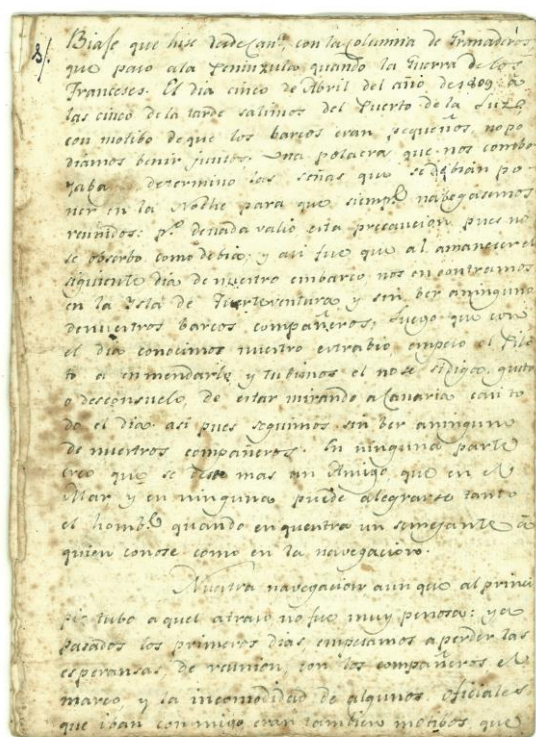 8/.
Biaje que hise dede Can.ª con la columna de Granaderos,
que paso ala Peninzula quando la Guerra de los
Franceses. El dia cinco de Abril del año de 1809 â
las cinco de la tarde salimos del Puerto de la Luz
con motibo deque los barcos eran pequeños, no po
diamos benir juntos. Una polacra que nos combo
yaba determino las señas que se debian po-
ner en la Nothe para que siemp.e nabegasemos
reunidos: p.o denada valio esta precaucion pues no
se obserbo como debia; y asi fue que al amanecer el
siguiente dia de nuestro embarco nos encontramos
en la Ysla de Fuerteventura y sin ber aninguno
denuestros barcos compañeros, luego que con
el dia conocimos nuestro estrabio empeso el Pilo
to a enmendarle y tubimos el nose sidiga, gusto
o desconsuelo, de estar mirando a Canaria casi to
do el dia. asi pues seguimos sin ber aninguno
de nuestros compañeros. En ninguna parte
creo que se mas un Amigo que en el
Mar y en ninguna puede alegrarse tanto
el homb.e quando enquentra un semejante â
quien conose como en la navegacion.
Nuestra navegacion aun que al princi
pio tubo aquel atraso no fue muy penosa: ya
pasados los primeros dias, empesamos a perder las
esperansas de reunion, con los compañeros el
mareo, y la incomodidad de algunos oficiales
que iban con migo, eran tambien motibos, que